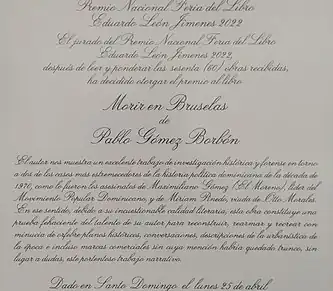 Premio Nacional Feria del Libro
Eduardo León Jimenes 2022
El jurado del Premio Nacional Feria del Libro
Eduardo León Jimenes 2022,
después de leer y ponderar las sesenta (60) obras recibidas,
ha decidido otorgar el premio al libro
Morir en Bruselas
de
Pablo Gómez Borbón
El autor nos muestra un excelente trabajo de investigación histórica y forense en torno
a dos de los casos más estremecedores de la historia política dominicana de la década de
1970, como lo fueron los asesinatos de Maximiliano Gómez (El Moreno), líder del
Movimiento Popular Dominicano, y de Miriam Pinedo, viuda de Otto Morales.
En ese sentido, debido a su incuestionable calidad literaria, esta obra constituye una
prueba fehaciente del talento de su autor para reconstruir, rearmar y recrear con
minucia de orfebre planos históricos, conversaciones, descripciones de la urbanística de
la época e incluso marcas comerciales sin cuya mención habría quedado trunco, sin
lugar a dudas, este portentoso trabajo narrativo.
Dado en Santo Domingo, el lunes 25 de abril